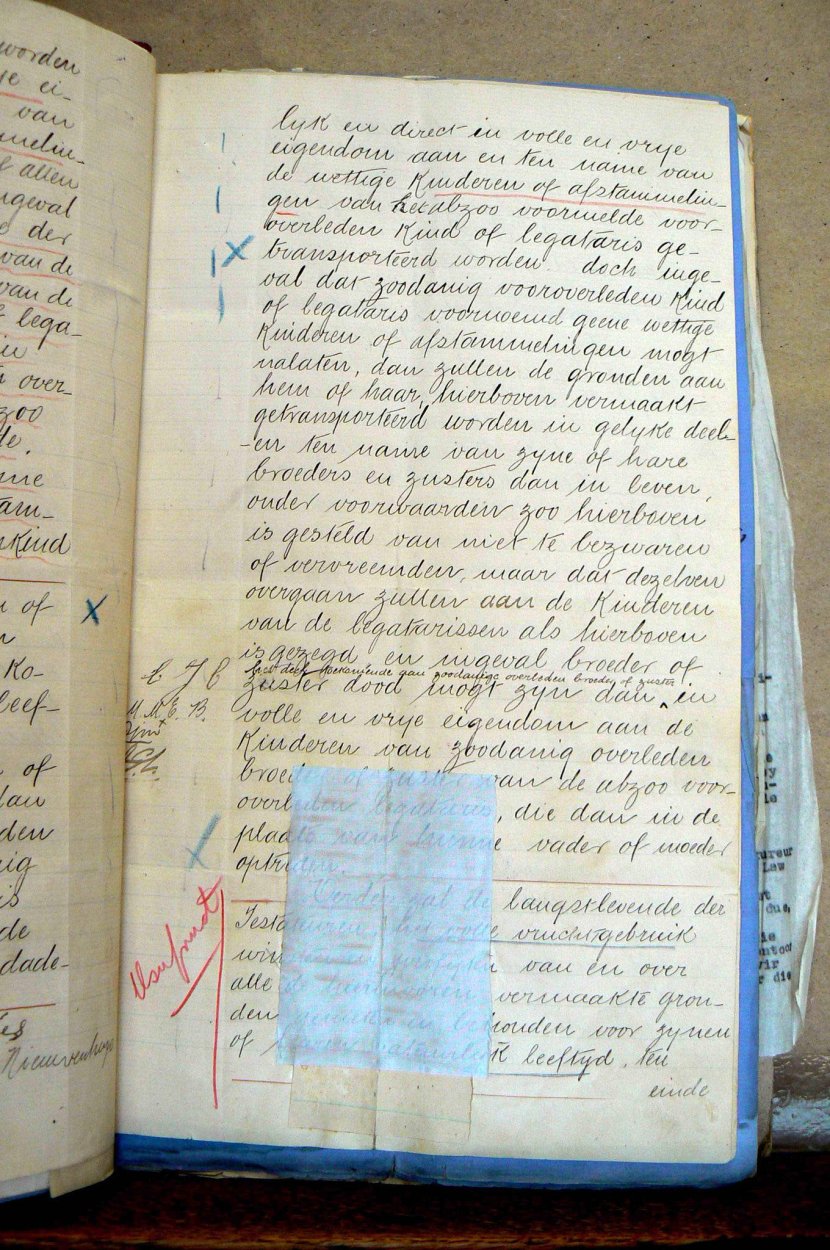 worden
je ei-
van
mmelin-
f allen
ngeval
e der
van de
van de
e lega-
in
n over-
zoo
de.
me
tam-
nkind
n of
n
Ko-
leef-
n of
dan
den
nig
is
de
dade-
Nieuwenhuys
lyk en direct in volle en vrye
eigendom aan en ten name van
de wettige Kinderen of afstammelin-
gen van het abzoo voormelde voor-
overleden Kind of legataris ge-
transporteerd worden. doch inge-
val dat zoodanig vooroverleden Kind
of legataris voornoemd geene wettige
Kinderen of afstammelingen mogt
nalaten, dan zullen de gronden aan
hem of haar, hierboven vermaakt
getransporteerd worden in gelyke deel-
-en ten name van zyne of hare
broeders en zusters dan in leven,
onder voorwaarden zoo hierboven
is gesteld van niet te bezwaren
of vervreemden, maar dat dezelven
overgaan zullen aan de Kinderen
van de legatarissen als hierboven
is gezegd en ingeval broeder of
het deel toekomende aan zoodanige overleden broeder of zuster
zuster dood mogt zyn dan ^ in
volle en vrye eigendom aan de
Kinderen van zoodanig overleden
broeder of zuster van de abzoo voor-
overleden legataris, die dan in de
plaats van hunne vader of moeder
optreden.
Verder zal de langstlevende der
Testateuren, het volle vruchtgebruik
van en over
alle de hiervoren vermaakte gron-
den behouden voor zynen
of haren natuurlyk leeftyd, ten
einde
M. M. E. B.
Usufruct